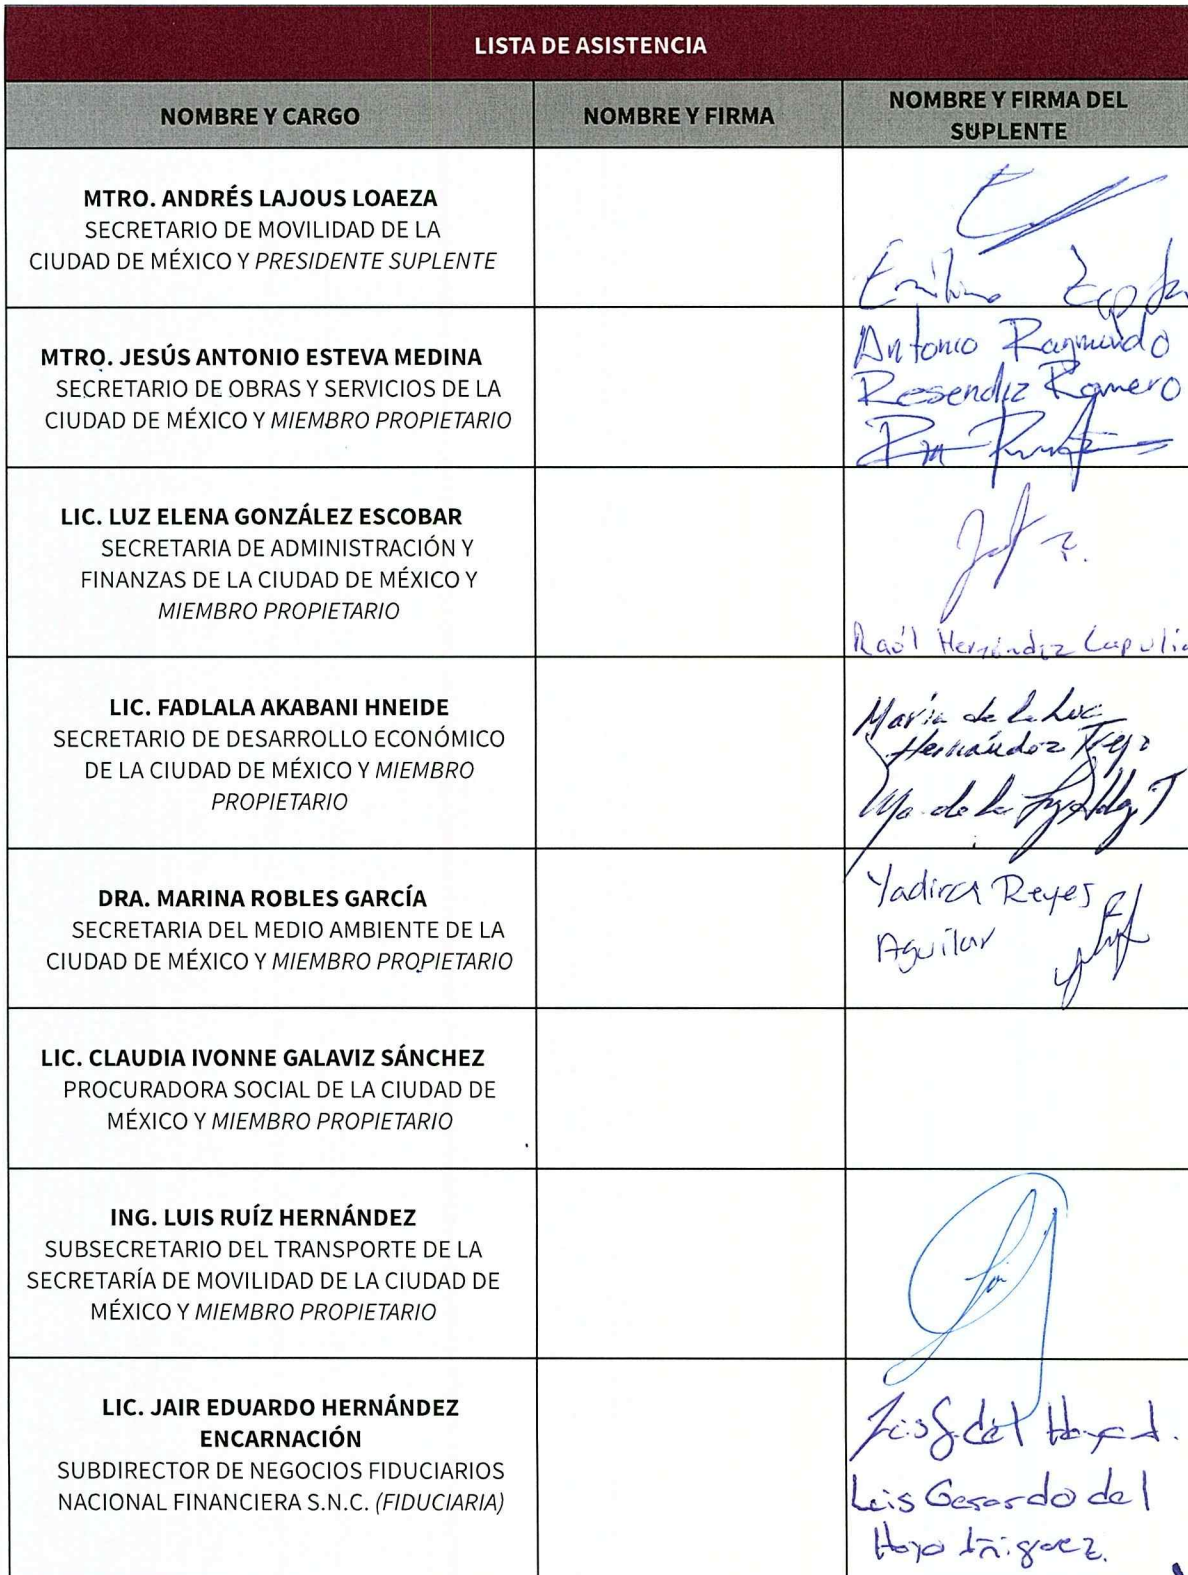 LISTA DE ASISTENCIA
NOMBRE Y CARGO
NOMBRE Y FIRMA
NOMBRE Y FIRMA DEL
SUPLENTE
MTRO. ANDRÉS LAJOUS LOAEZA
SECRETARIO DE MOVILIDAD DE LA
CIUDAD DE MÉXICO Y PRESIDENTE SUPLENTE
MTRO. JESÚS ANTONIO ESTEVA MEDINA
SECRETARIO DE OBRAS Y SERVICIOS DE LA
CIUDAD DE MÉXICO Y MIEMBRO PROPIETARIO
Antonio Raymundo
Resendiz Romero
LIC. LUZ ELENA GONZÁLEZ ESCOBAR
SECRETARIA DE ADMINISTRACIÓN Y
FINANZAS DE LA CIUDAD DE MÉXICO Y
MIEMBRO PROPIETARIO
Raúl Hernández
LIC. FADLALA AKABANI HNEIDE
SECRETARIO DE DESARROLLO ECONÓMICO
DE LA CIUDAD DE MÉXICO Y MIEMBRO
PROPIETARIO
María de la Luz
Hernández Trejo
DRA. MARINA ROBLES GARCÍA
SECRETARIA DEL MEDIO AMBIENTE DE LA
CIUDAD DE MÉXICO Y MIEMBRO PROPIETARIO
Yadira Reyes
Aguilar
LIC. CLAUDIA IVONNE GALAVIZ SÁNCHEZ
PROCURADORA SOCIAL DE LA CIUDAD DE
MÉXICO Y MIEMBRO PROPIETARIO
ING. LUIS RUÍZ HERNÁNDEZ
SUBSECRETARIO DEL TRANSPORTE DE LA
SECRETARÍA DE MOVILIDAD DE LA CIUDAD DE
MÉXICO Y MIEMBRO PROPIETARIO
LIC. JAIR EDUARDO HERNÁNDEZ
ENCARNACIÓN
SUBDIRECTOR DE NEGOCIOS FIDUCIARIOS
NACIONAL FINANCIERA S.N.C. (FIDUCIARIA)
Luis Gerardo del
Hoyo Iñiguez.